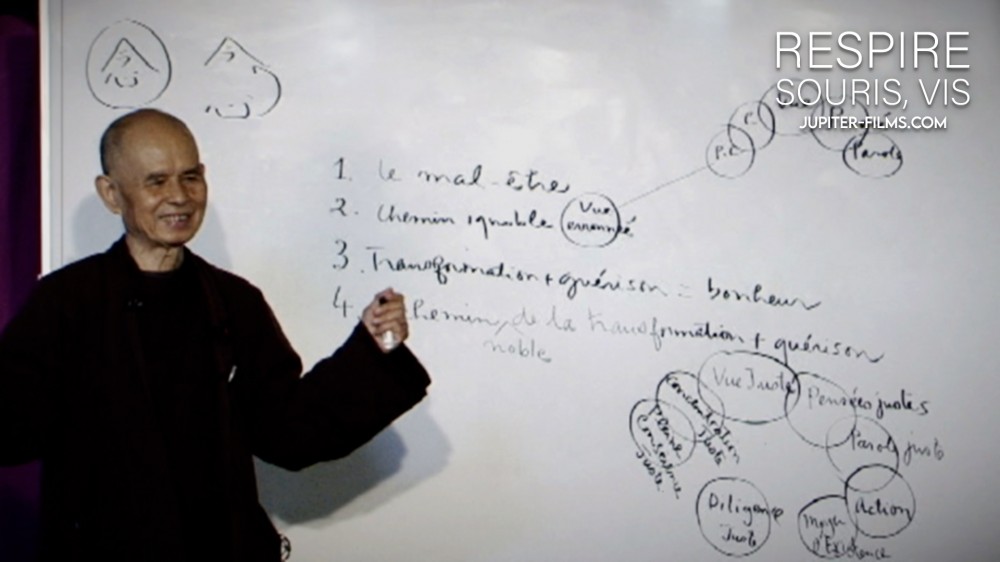 RESPIRE
SOURIS, VIS
JUPITER-FILMS.COM
念
念
P.C.
Parole
1. le mal-être
2. Chemin ignoble
Vue
erronnée
3. Transformation + guérison = bonheur
4. chemin de la transformation + guérison
noble
Vue Juste
Pensées justes
Parole juste
Action
Moyen
d'Existence
Diligence
Juste
Pleine
Conscience
Juste
Concentration
Juste